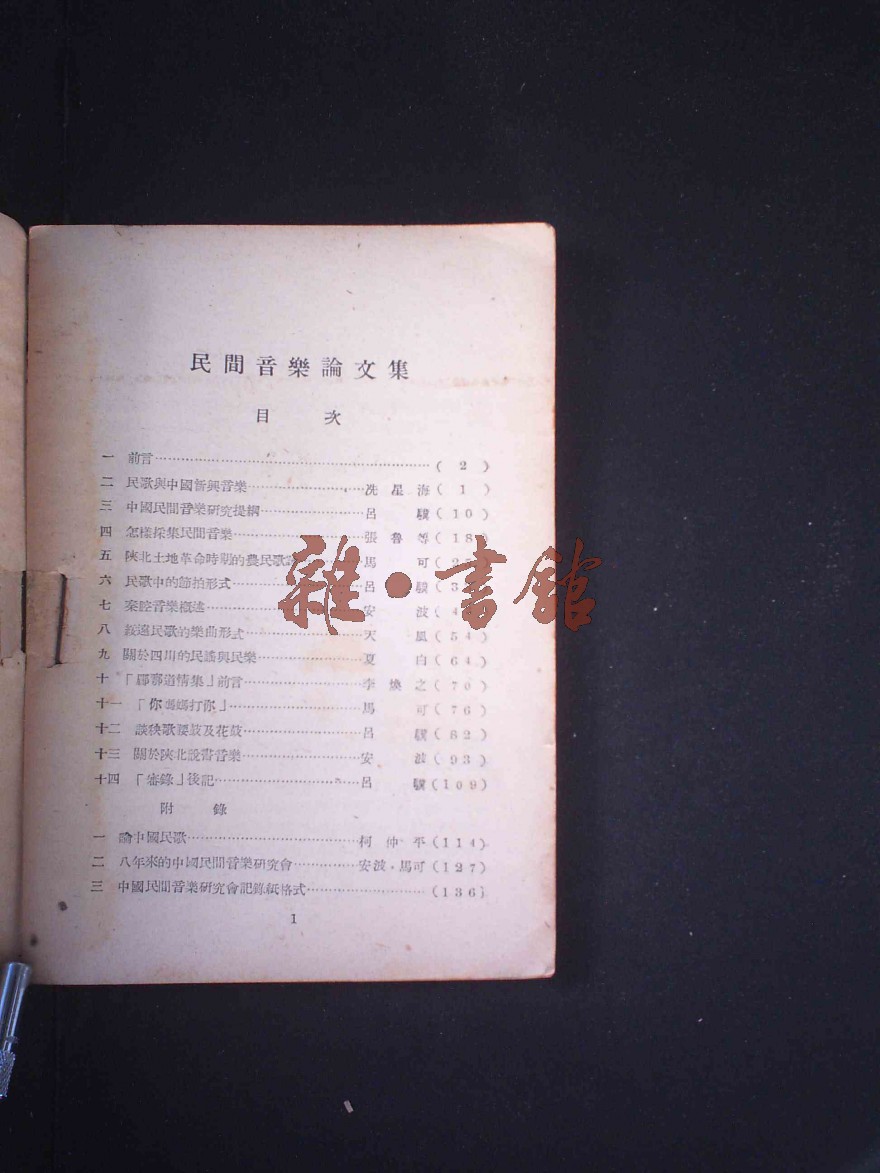 民間音樂論文集
目 次
一 前言……(2)
二 民歌與中國新興音樂……冼星海(1)
三 中國民間音樂研究提綱……呂 驥(10)
四 怎樣採集民間音樂……張魯等(18
五 陝北土地革命時期的農民歌……馬 可(
六 民歌中的節拍形式……呂 驥(3
七 秦腔音樂概述……安 波(4
八 綏遠民歌的樂曲形式……天 風(54)
九 關於四川的民謠與民樂……夏 白(64)
十 「郿鄠道情集」前言……李煥之(70)
十一 「你媽媽打你」……馬 可(76)
十二 談秧歌腰鼓及花鼓……呂 驥(82)
十三 關於陝北說書音樂……安 波(93)
十四 「審錄」後記……呂 驥(109)
附 錄
一 論中國民歌……柯仲平(114)
二 八年來的中國民間音樂研究會……安波·馬可(127)
三 中國民間音樂研究會記錄紙格式……(136)
1
雜·書館